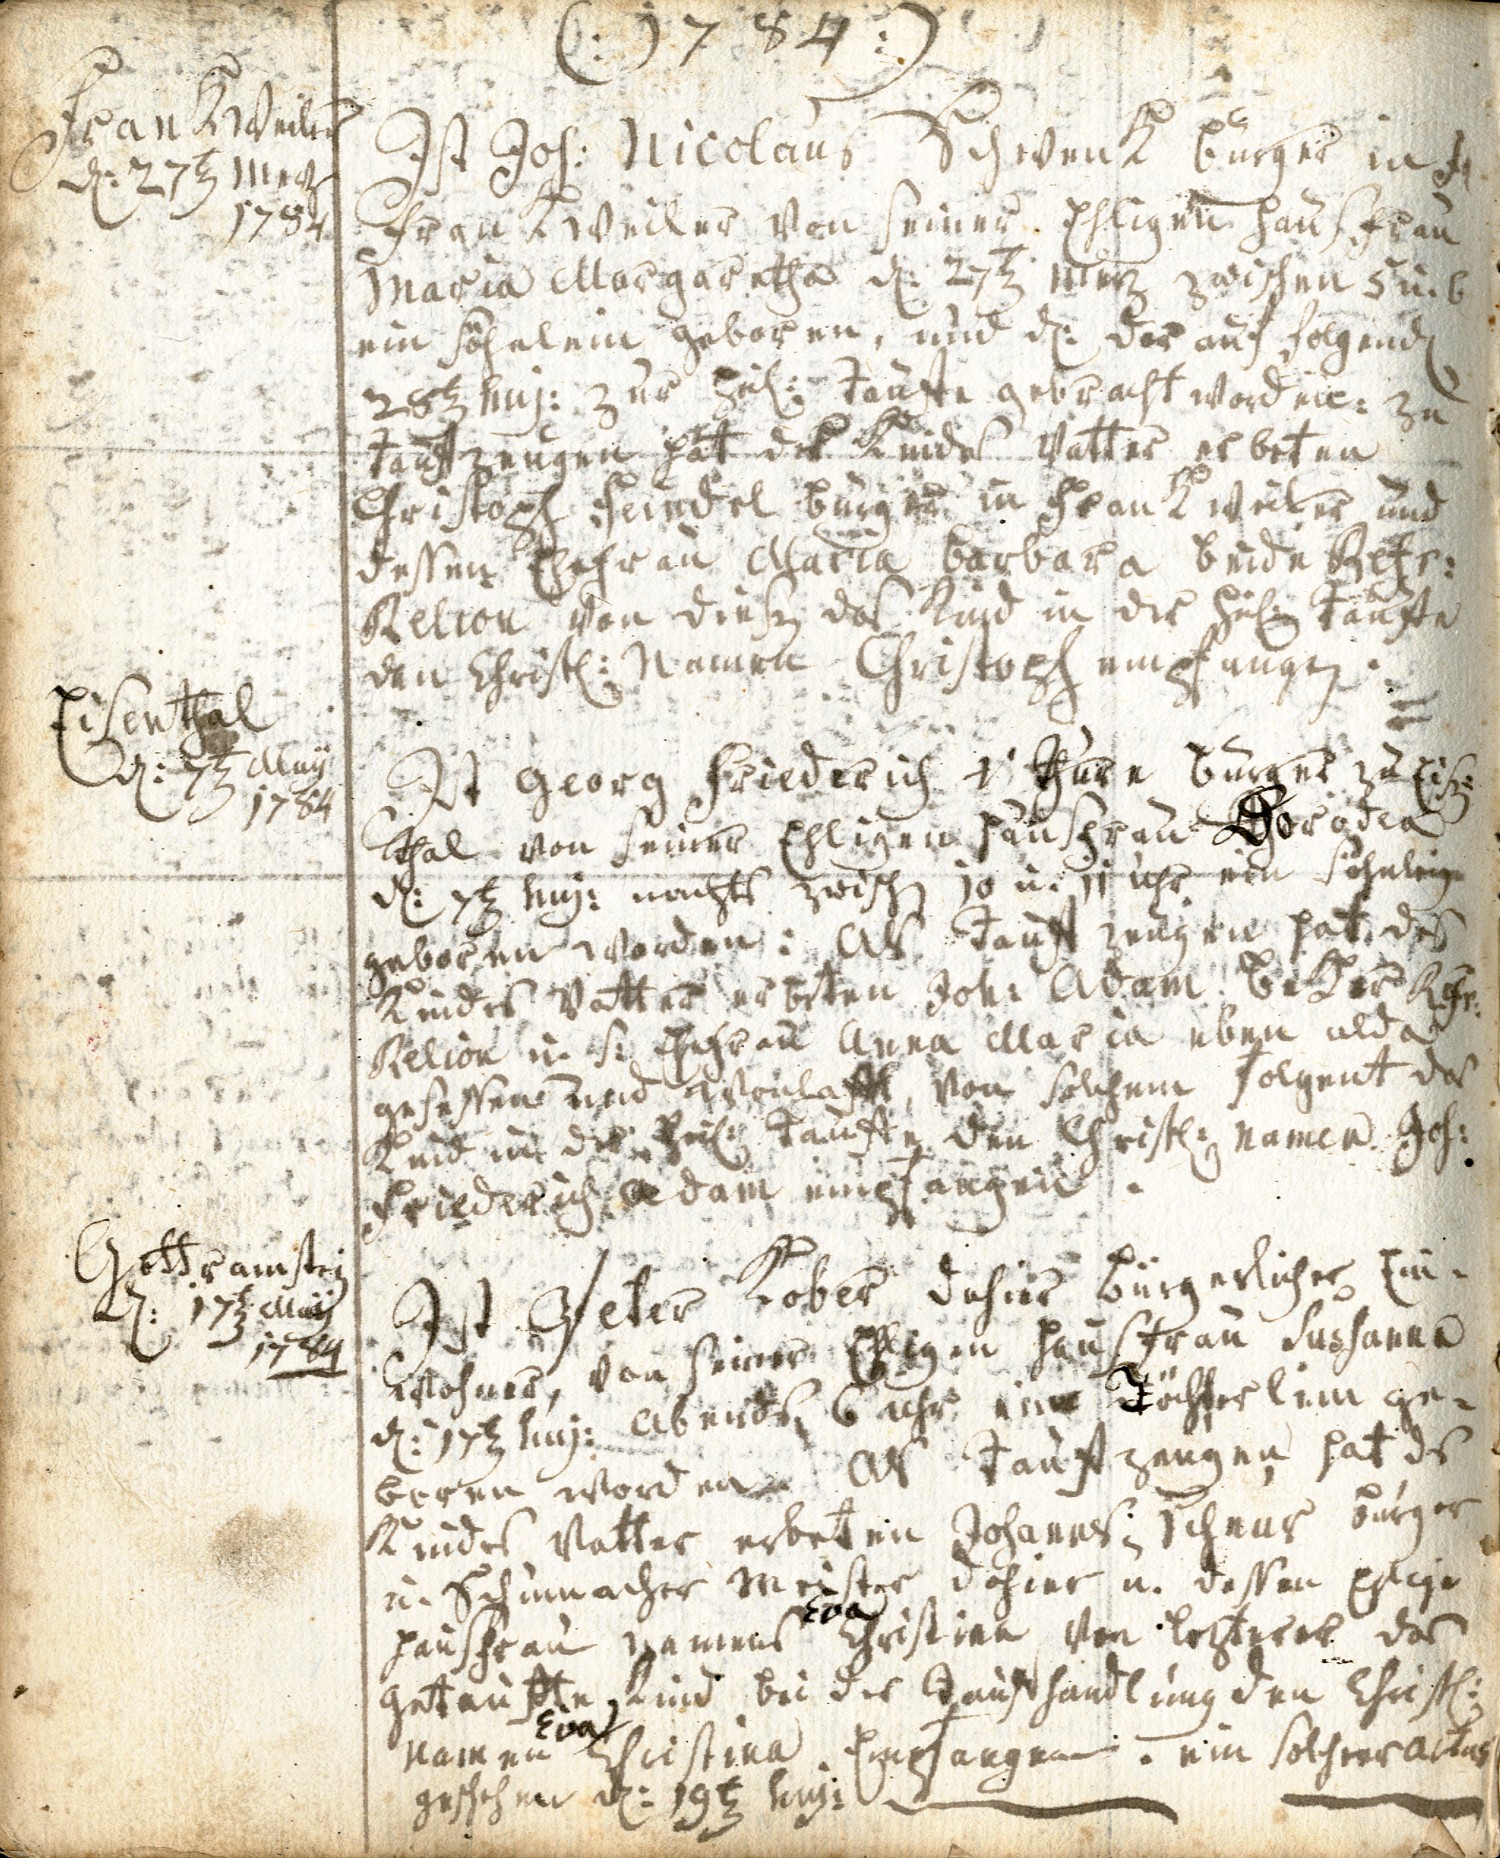 (: 1784 :)
FranKweiler
d: 27t Mertz
1784
Ist Joh: Nicolaus SchwenK burger in
FranKweiler von seiner Ehligen haußfrau
Maria Margaretha d: 27t Mertz zwischen 5 u. 6
ein söhnlein geboren, und d: darauf folgend
28t huj: zur heil: Tauffe gebracht worden: zu
Tauffzeugen hat des Kindes Vatter erbeten
Christoph burger in FranKweiler und
dessen Ehefrau Maria barbara beide Refr:
Relion von dießen das Kind in der heil: Tauffe
den Christl: Namen Christoph empfangen.
Eisenthal
d: 7t May
1784
Ist Georg Friederich burger zu Eisen
thal von seiner Ehligen haußfrau Dorodea
d: 7t huj: nachts zwisch 10 u. 11 uhr ein söhnlein
geboren worden: Als Tauffzeugen hat des
Kindes Vatter erbeten Joh: Adam beKer Refr:
Relion u. s: Ehefrau Anna Maria eben alda
gesessen und, von solchem folgent das
Kind in der heil: Tauffe den Christl: namen Joh:
Friederich Adam empfangen.
Gottramstein
d: 17t May
1784
Ist Peter Kober dahier bürgerlicher Ein-
wohner, von seiner Ehligen haußfrau Susanna
d: 17t huj: Abends 6 uhr ein Töchterlein ge-
boren worden. Als Tauffzeugen hat des
Kindes Vatter erbeten Johannes Scheur burger
u. Schumacher Meister dahier u. dessen Ehlige
haußfrau namens Eva Christina von letzterer das
getauffte Kind bei der Tauffhandlung den Christl:
namen Eva Christina Empfangen. ein solcher actus
geschehen d: 19t huj: